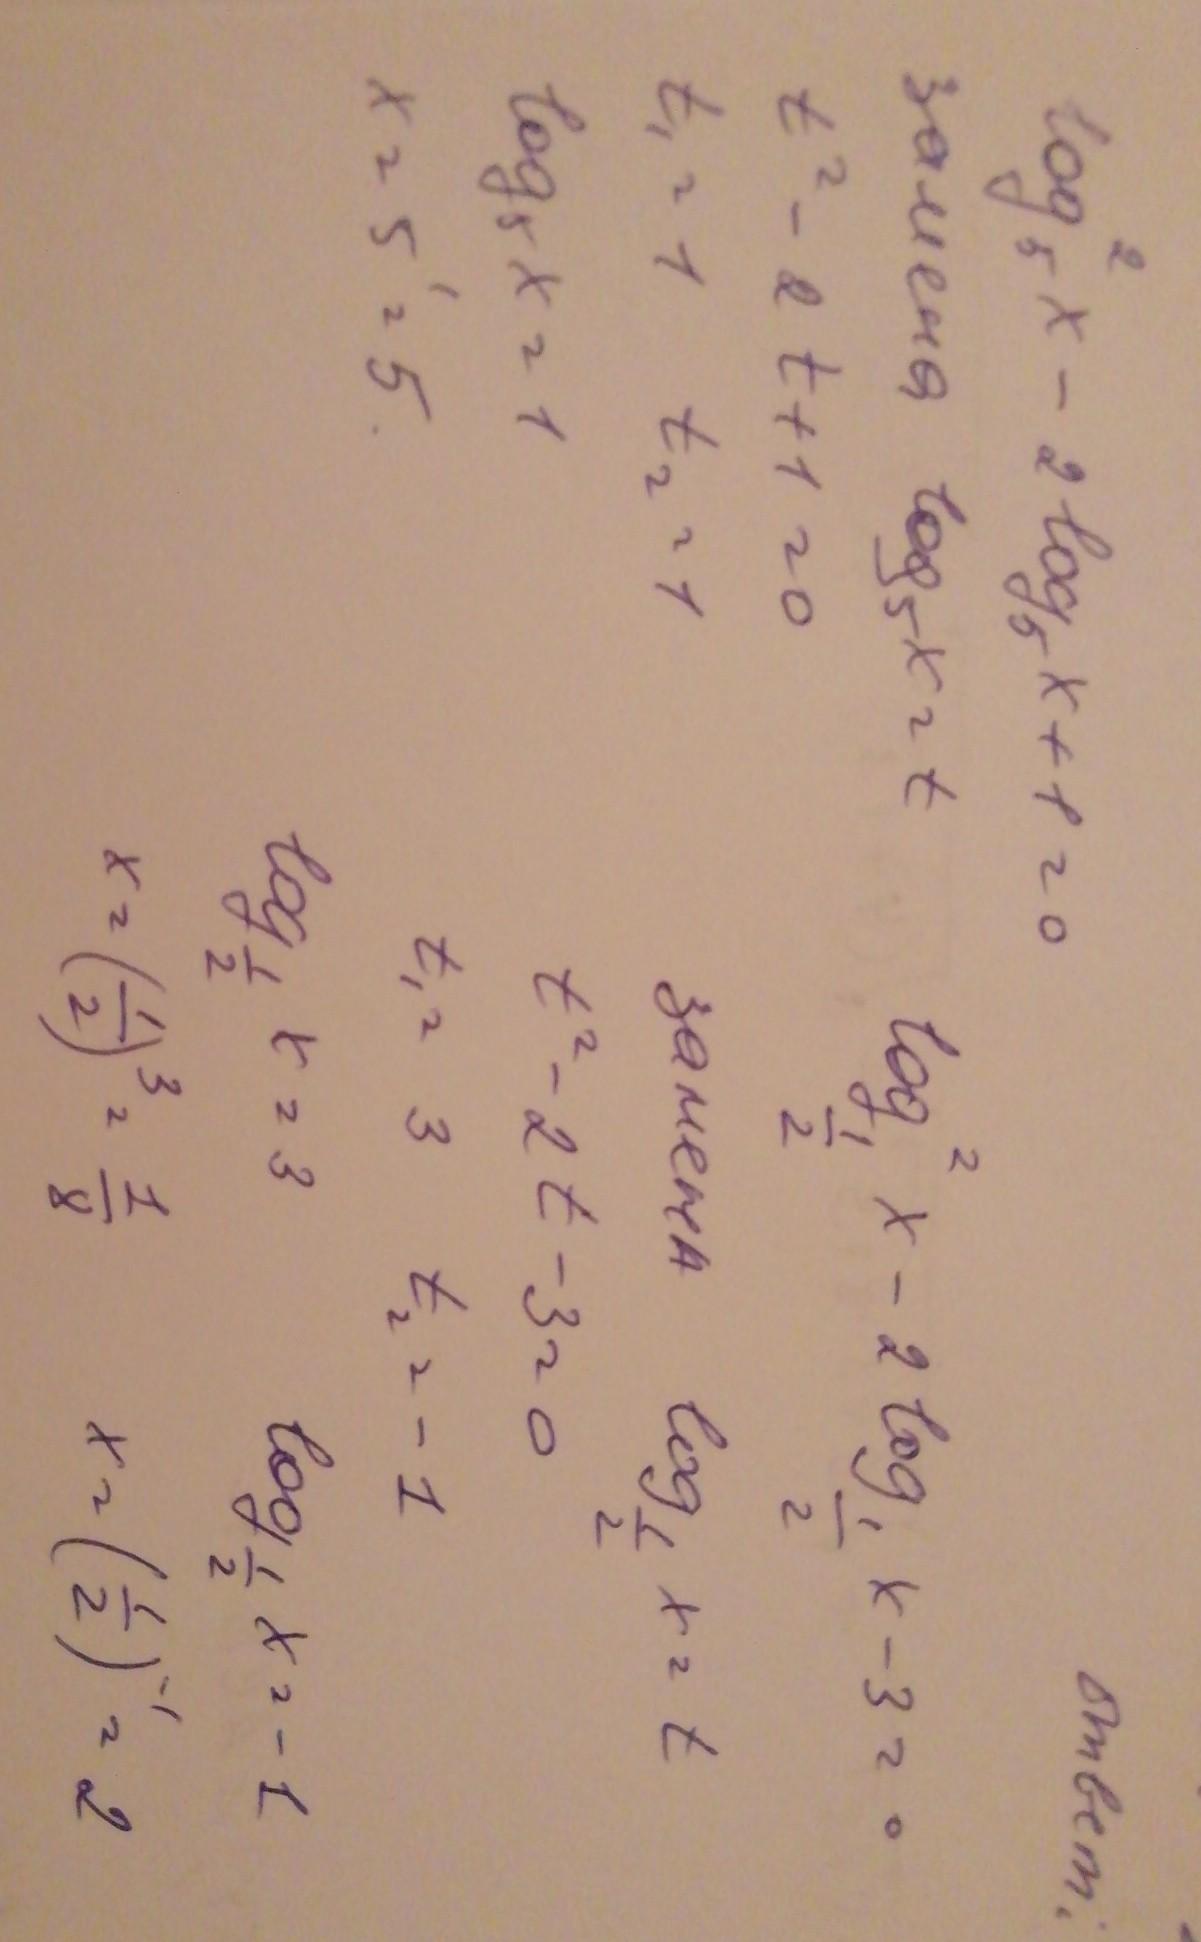 ответ:
log₅² x - 2 log₅ x + 1 = 0
замена log₅ x = t
t² - 2t + 1 = 0
t₁ = 1 t₂ = 1
log₅ x = 1
x = 5¹ = 5.
log²_{1/2} x - 2 log_{1/2} x - 3 = 0
замена log_{1/2} x = t
t² - 2t - 3 = 0
t₁ = 3 t₂ = -1
log_{1/2} x = 3 log_{1/2} x = -1
x = (1/2)³ = 1/8 x = (1/2)⁻¹ = 2